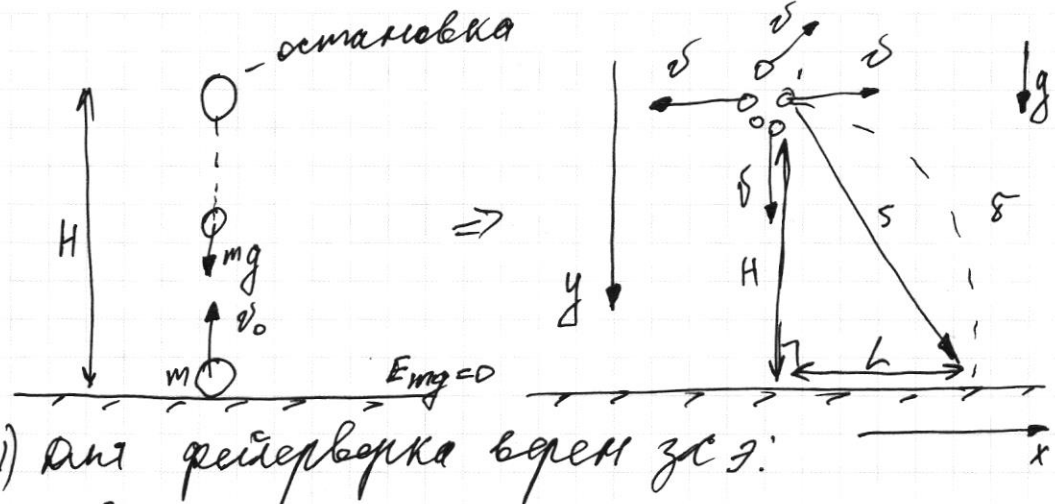 остановка
H
mg
v₀
m
Emg=0
⇒
v
v
v
v
g
y
H
S
L
x
1) Для фейерверка верен ЗСЭ: